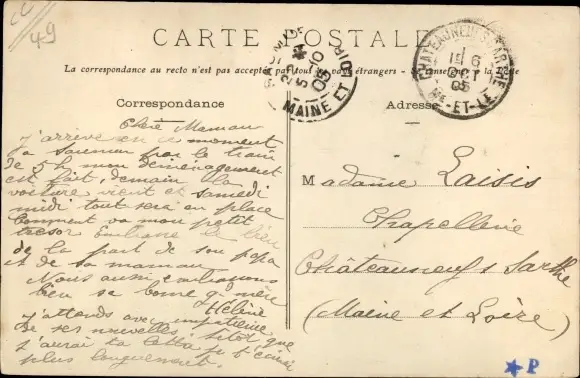 CC
49
CARTE POSTALE
La correspondance au recto n'est pas acceptée par tous les pays étrangers - Se renseigner à la Poste
Correspondance
Adresse
SAUMUR
5-10
05
MAINE ET LOIRE
CHATEAUNEUF S SARTHE
1E 6
OCT
05
Mne-ET-LRE
Chère Maman
J'arrive en ce moment
à Saumur par le train
de 5h mon déménagement
est fait, demain la
voiture vient et samedi
midi tout sera en place
Comment va mon petit
trésor Embrasse le bien
de la part de son papa
et de sa maman
Nous aussi embrassons
bien sa bonne gd mère
Hélène
J'attends avec impatience
de ses nouvelles, sitôt que
j'aurai ta lettre je t'écrirai
plus longuement.
Madame Laisis
Chapellerie
Châteauneuf s Sarthe
(Maine et Loire)
P